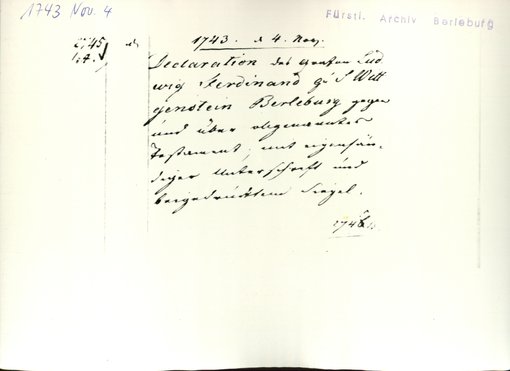 1743 Nov. 4
Fürstl. Archiv Berleburg
1743. d 4. Nov.
Declaration des Grafen Lud
wig Ferdinand zu S. Witt
genstein Berleburg gegen
und über obgenanntes
Testament, mit eigenhän-
diger Unterschrift und
beigedrücktem Siegel.